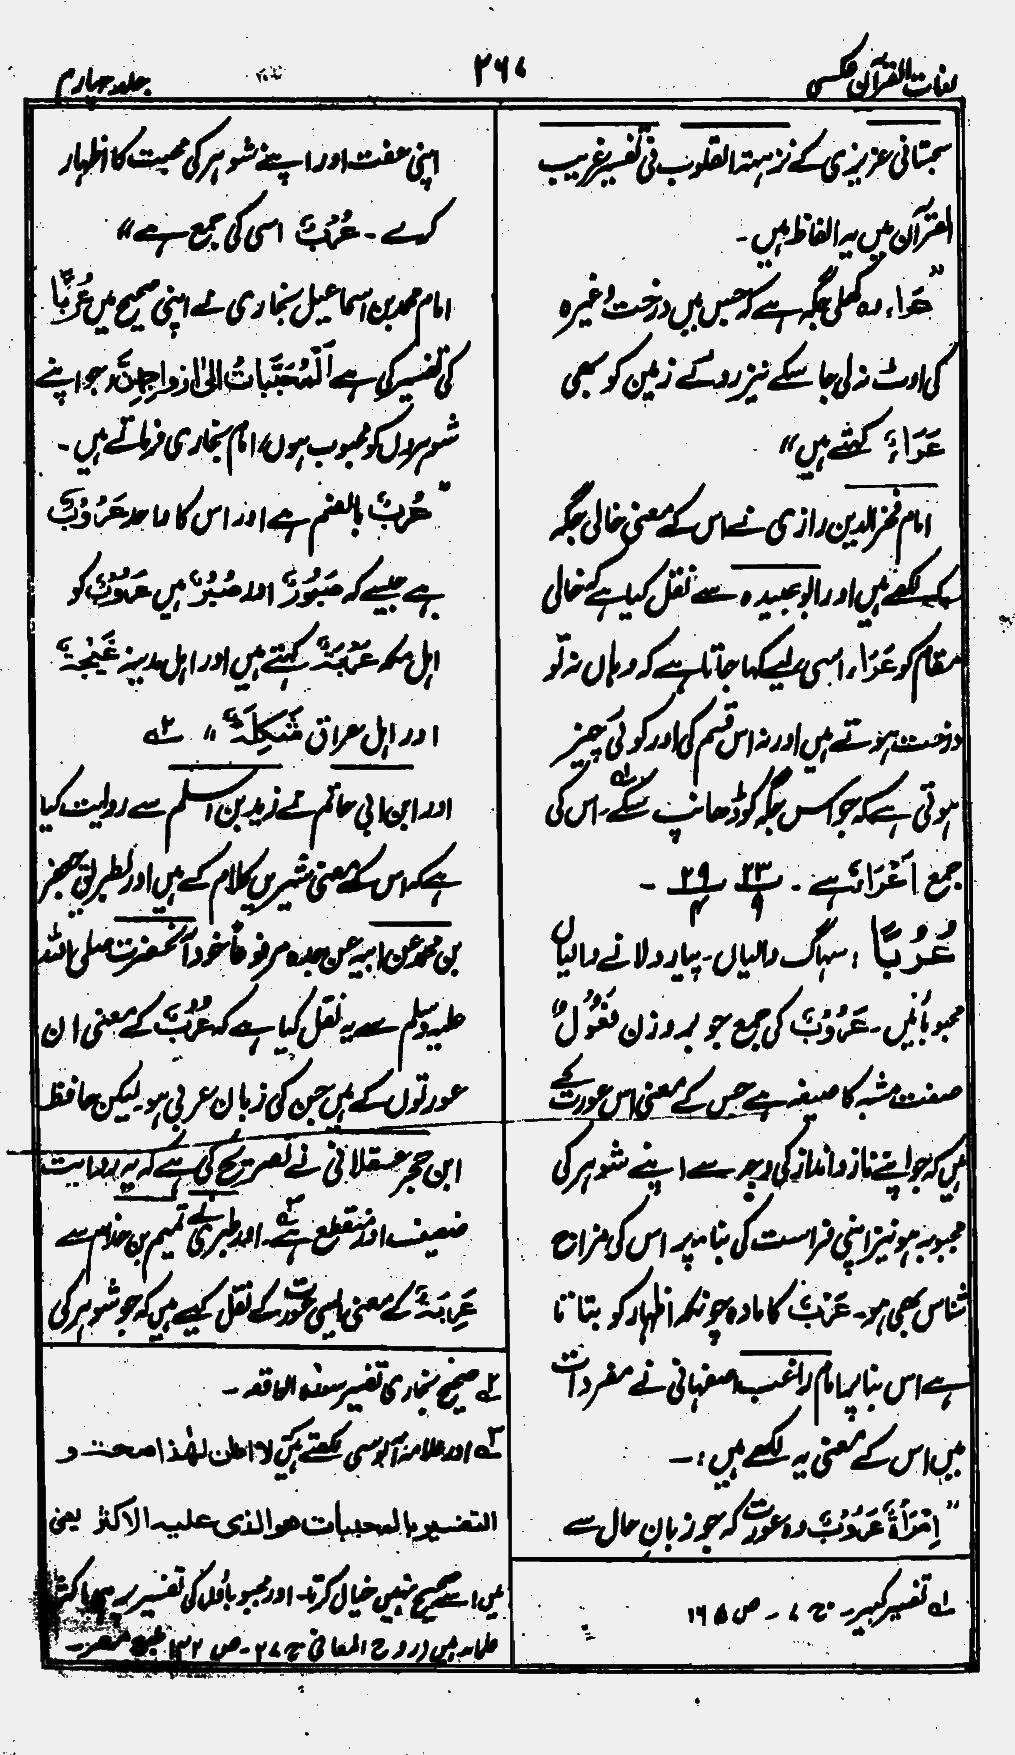 لغات القرآن عکسی
۲۶۷
جلد چہارم
سجستانی عزیزی کے نزہتہ القلوب فی تفسیر غریب
القرآن میں یہ الفاظ ہیں۔
"عَراء وہ کھلی جگہ ہے کہ جس میں درخت وغیرہ
کی اوٹ نہ لی جا سکے نیز روئے زمین کو بھی
عَرَاءٌ کہتے ہیں"
امام فخر الدین رازی نے اس کے معنی خالی جگہ
کے لکھے ہیں اور ابو عبیدہ سے نقل کیا ہے کہ خالی
مقام کو عَرَاء اسی لیے کہا جاتا ہے کہ وہاں نہ تو
درخت ہوتے ہیں اور نہ اس قسم کی اور کوئی چیز
ہوتی ہے کہ جو اس جگہ کو ڈھانپ سکے۔ اس کی
جمع اَعْرَاءٌ ہے۔ ۲۳/۹ ۲۹/۴ ۔
عُرُبًا : سہاگ والیاں۔ پیار دلانے والیاں
محبوبائیں۔ عَرُوْبٌ کی جمع جو بروزن فَعُوْلٌ
صفت مشبہ کا صیغہ ہے جس کے معنی اس عورت کے
ہیں کہ جو اپنے ناز و انداز کی وجہ سے اپنے شوہر کی
محبوبہ ہو نیز اپنی فراست کی بنا پر اس کی مزاج
شناس بھی ہو۔ عَرْبٌ کا مادہ چونکہ اظہار کو بتاتا
ہے اس بنا پر امام راغب اصفہانی نے مفردات
میں اس کے معنی یہ لکھے ہیں :۔
"اِمْرَأَةٌ عَرُوْبٌ وہ عورت کہ جو زبانِ حال سے
لہ تفسیر کبیر۔ ج ۷ ۔ ص ۱۶۵
اپنی عفت اور اپنے شوہر کی محبت کا اظہار
کرے۔ عُرُبٌ اسی کی جمع ہے"
امام محمد بن اسماعیل بخاری نے اپنی صحیح میں عُرُبًا
کی تفسیر کی ہے اَلْمُحَبَّبَاتُ الیٰ ازواجِہِنَّ (جو اپنے
شوہروں کو محبوب ہوں) امام بخاری فرماتے ہیں۔
"عُرُبٌ بالضم ہے اور اس کا واحد عَرُوْبٌ
ہے جیسے کہ صَبُوْرٌ اور صُبُرٌ ہیں عَرُوْبٌ کو
اہل مکہ عَرِبَةٌ کہتے ہیں اور اہل مدینہ غَنِجَةٌ
اور اہل عراق شَكِلَةٌ" ۲ہ
اور ابن ابی حاتم نے زید بن اسلم سے روایت کیا
ہے کہ اس کے معنی شیریں کلام کے ہیں اور بطریق جعفر
بن محمد عن ابیہ عن جدہ مرفوعاً خود آنحضرت صلی اللہ
علیہ وسلم سے یہ نقل کیا ہے کہ عُرُبٌ کے معنی ان
عورتوں کے ہیں جن کی زبان عربی ہو۔ لیکن حافظ
ابن حجر عسقلانی نے تصریح کی ہے کہ یہ روایت
ضعیف اور منقطع ہے ۳ہ۔ اور طبری نے تمیم بن حذام سے
عَرِبَةٌ کے معنی ایسی عورت کے نقل کیے ہیں کہ جو شوہر کی
۲ہ صحیح بخاری تفسیر سورۂ الواقعہ۔
۳ہ اور علامہ آلوسی لکھتے ہیں لا اظن لھٰذا صحت و
التفسیر بالمحببات ھو الذی علیہ الاکثر یعنی
میں اسے صحیح نہیں خیال کرتا۔ اور محبوباؤں کی تفسیر پر ہی اکثر
علماء ہیں (روح المعانی ج ۲۷۔ ص ۱۳۲ طبع مصر۔